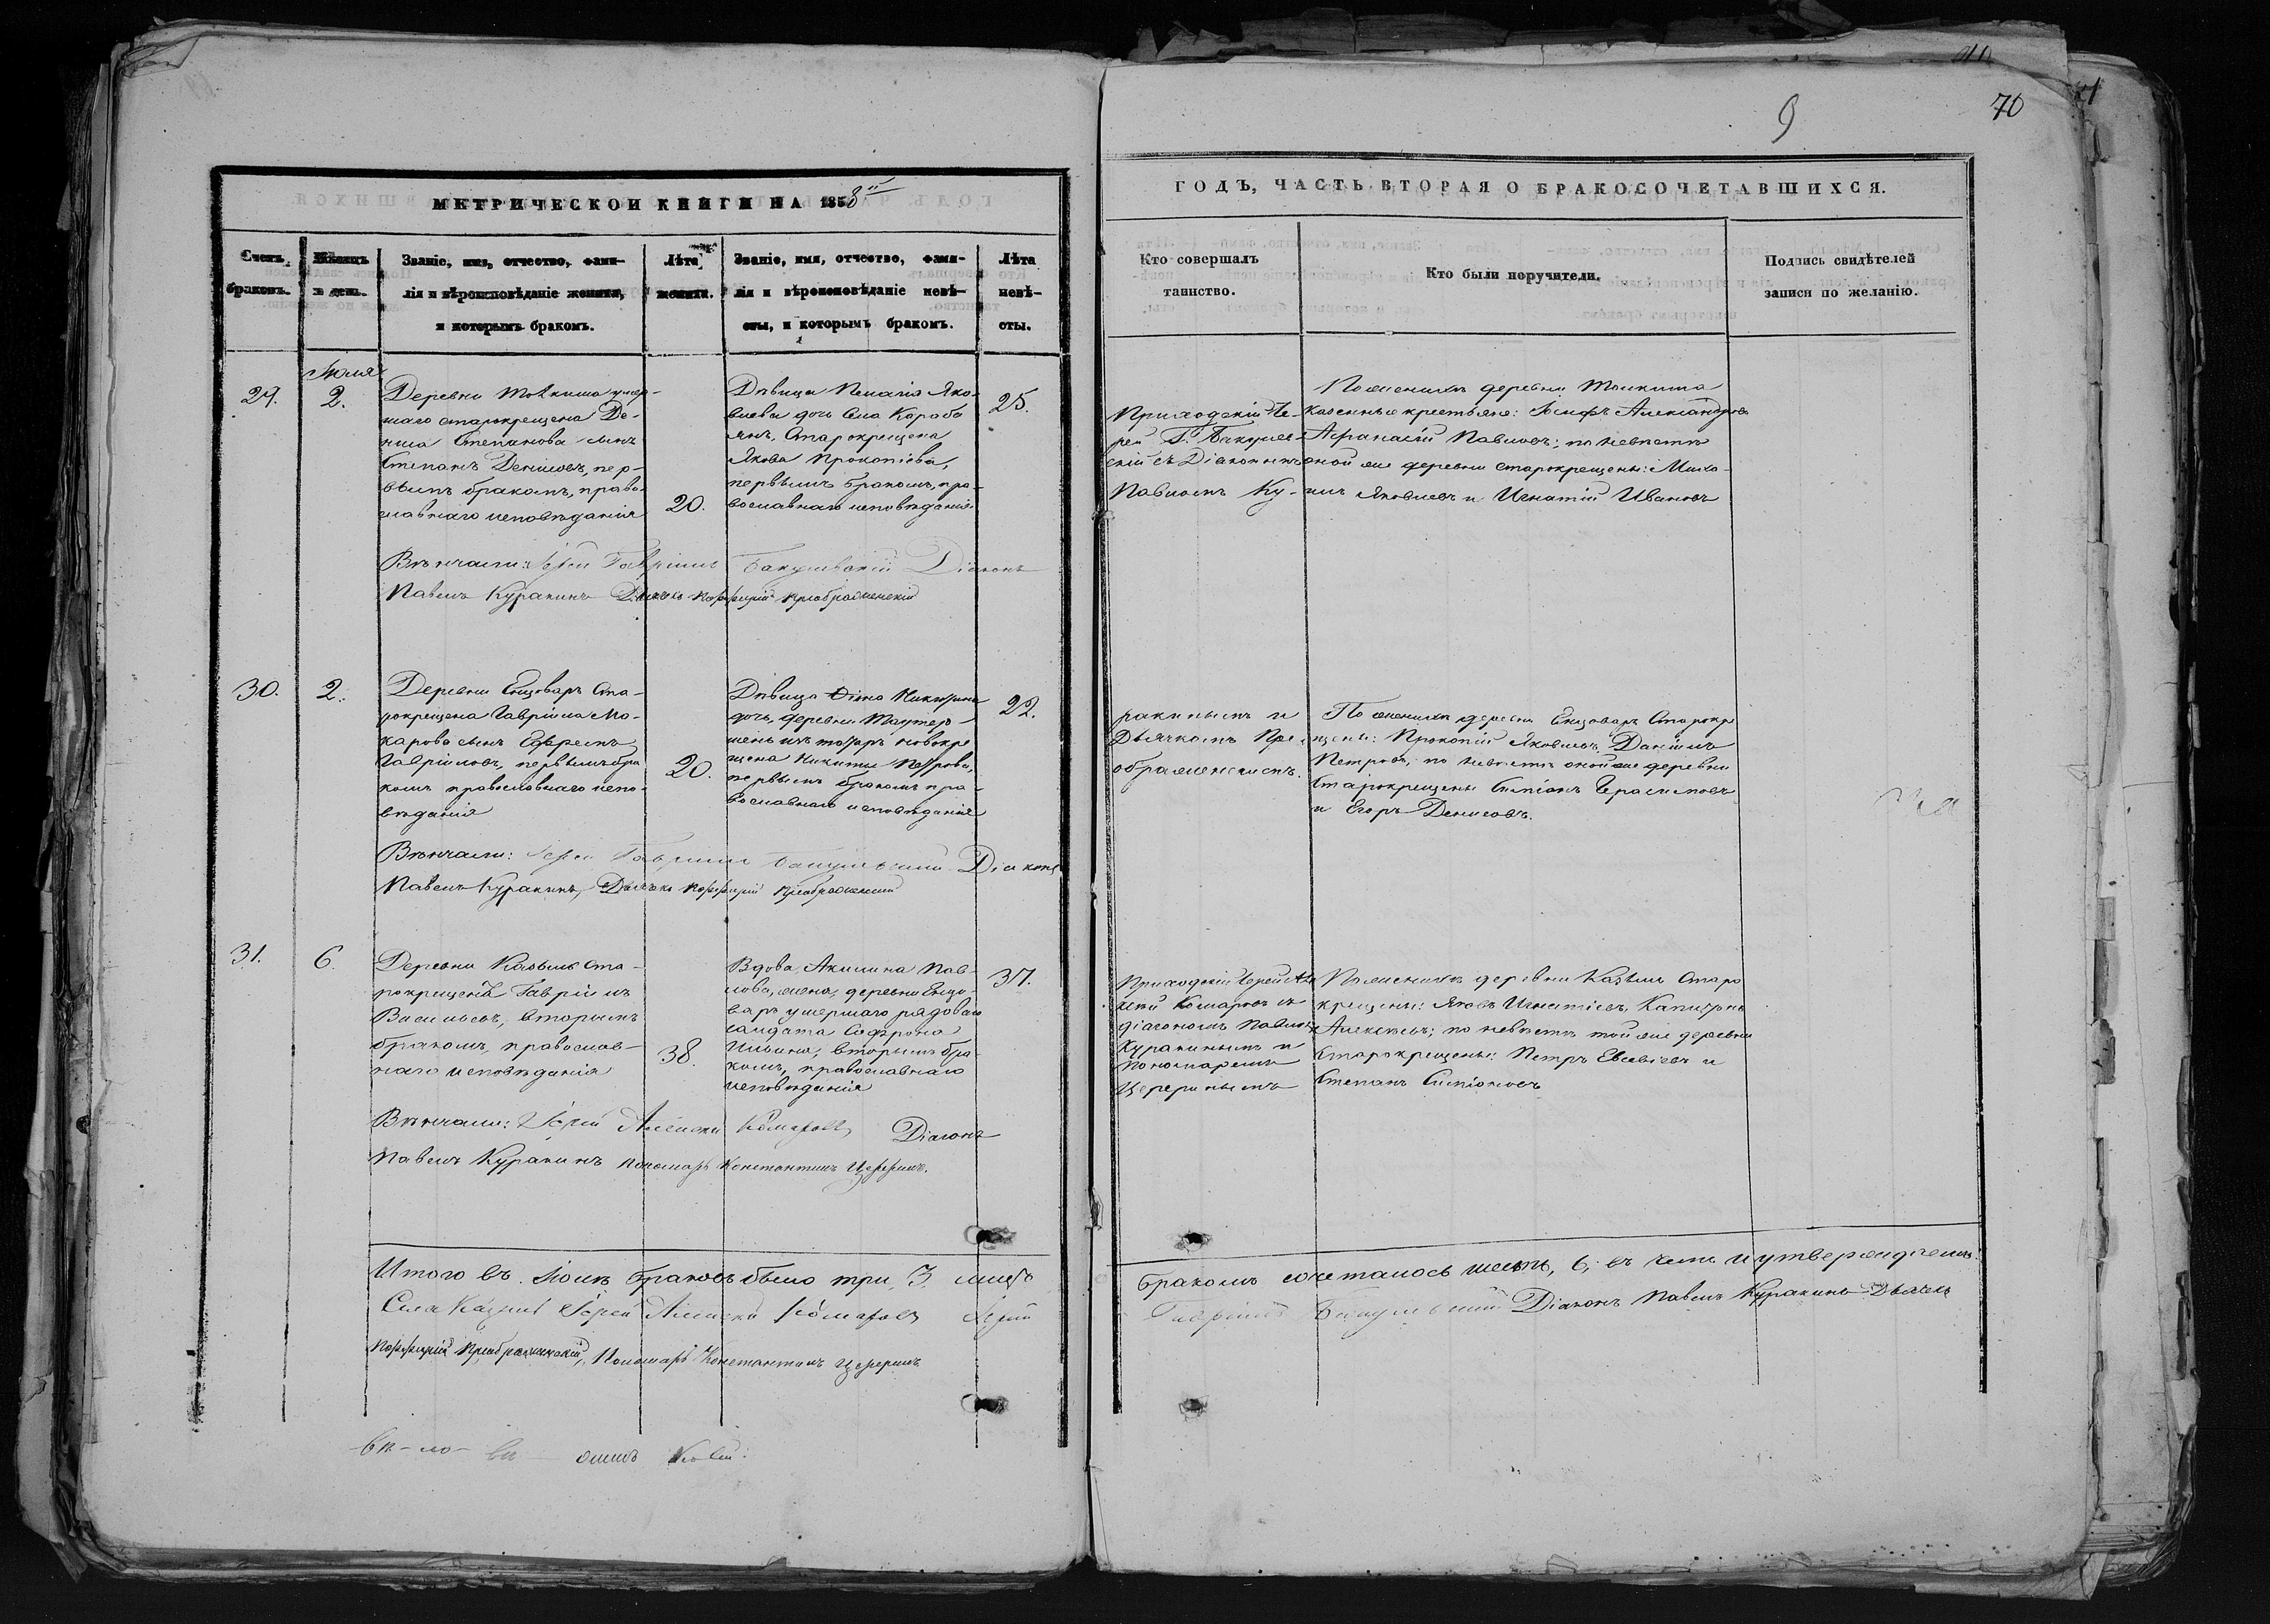 9
70
МЕТРИЧЕСКОЙ КНИГИ НА 1858й
ГОДЪ, ЧАСТЬ ВТОРАЯ О БРАКОСОЧЕТАВШИХСЯ.
Счетъ браковъ.
Мѣсяцъ и день.
Званіе, имя, отчество, фами-
лія и вѣроисповѣданіе жениха,
и которымъ бракомъ.
Лѣта жениха.
Званіе, имя, отчество, фами-
лія и вѣроисповѣданіе невѣ-
сты, и которымъ бракомъ.
Лѣта невѣ-
сты.
Кто совершалъ
таинство.
Кто были поручители.
Подпись свидѣтелей
записи по желанію.
Іюля
29.
2.
Деревни умер-
шаго старокрещена Де-
ниса Степанова сынъ
Степанъ Денисовъ, пер-
вымъ бракомъ, право-
славнаго исповѣданія
20.
Дѣвица Пелагія Яко-
влева дочь села
Старокрещена
Якова Прокопіева,
первымъ бракомъ, пра-
вославнаго исповѣданія
25.
Приходскій Іе-
рей Г. Бакулев-
скій съ Діакономъ
Павломъ Ку-
По женихѣ деревни
казенные крестьяне: Іосифъ Александровъ
Афанасій Павловъ; по невѣстѣ
оной же деревни старокрещены: Миха-
илъ Яковлевъ и Игнатій Ивановъ
Вѣнчали: Іерей Гавріилъ Бакулевскій Діаконъ
Павелъ Куракинъ Дьячекъ Порфирій Преображенскій
30.
2.
Деревни Енцоваръ Ста-
рокрещена Гавріила Ма-
карова сынъ Ефремъ
Гавріиловъ, первымъ бра
комъ православнаго испо-
вѣданія
20.
Дѣвица Никитина
дочь, деревни
новокре
щена Никиты Петрова,
первымъ бракомъ пра-
вославнаго исповѣданія
22.
ракинымъ и
Дьячкомъ Пре-
ображенскимъ.
По женихѣ деревни Енцоваръ Старокре
щены: Прокопій Яковлевъ, Даніилъ
Петровъ, по невѣстѣ оной же деревни
Старокрещены Симіонъ Герасимовъ
и Егоръ Денисовъ.
Вѣнчали: Іерей Гавріилъ Бакулевскій Діаконъ
Павелъ Куракинъ, Дьячекъ Порфирій Преображенскій
31.
6.
Деревни Казыль Ста-
рокрещенъ Гавріилъ
Васильевъ, вторымъ
бракомъ, православ-
наго исповѣданія
38.
Вдова Акилина Пав-
лова, жена, деревни Енцо-
варъ умершаго рядоваго
салдата Софрона
Ильина, вторымъ бра-
комъ, православнаго
исповѣданія
37.
Приходскій Іерей Але
ксій Комаровъ съ
діакономъ Павломъ
Куракинымъ и
пономаремъ
Церериымъ
По женихѣ деревни Казыль Старо
крещены: Яковъ Игнатіевъ, Капитонъ
Алексѣевъ; по невѣстѣ той же деревни
Старокрещены: Петръ Евсевіевъ и
Степанъ Симіоновъ
Вѣнчали: Іерей Алексій Комаровъ, Діаконъ
Павелъ Куракинъ пономарь Константинъ Цереринъ.
Итого въ Іюлѣ браковъ было три, 3, лицъ
бракомъ сочеталось шесть, 6; въ чемъ и утверждаемъ:
Села Іерей Алексій Комаровъ Іерей
Гавріилъ Бакулевскій Діаконъ Павелъ Куракинъ Дьячекъ
Порфирій Преображенскій, Пономарь Константинъ Цереринъ